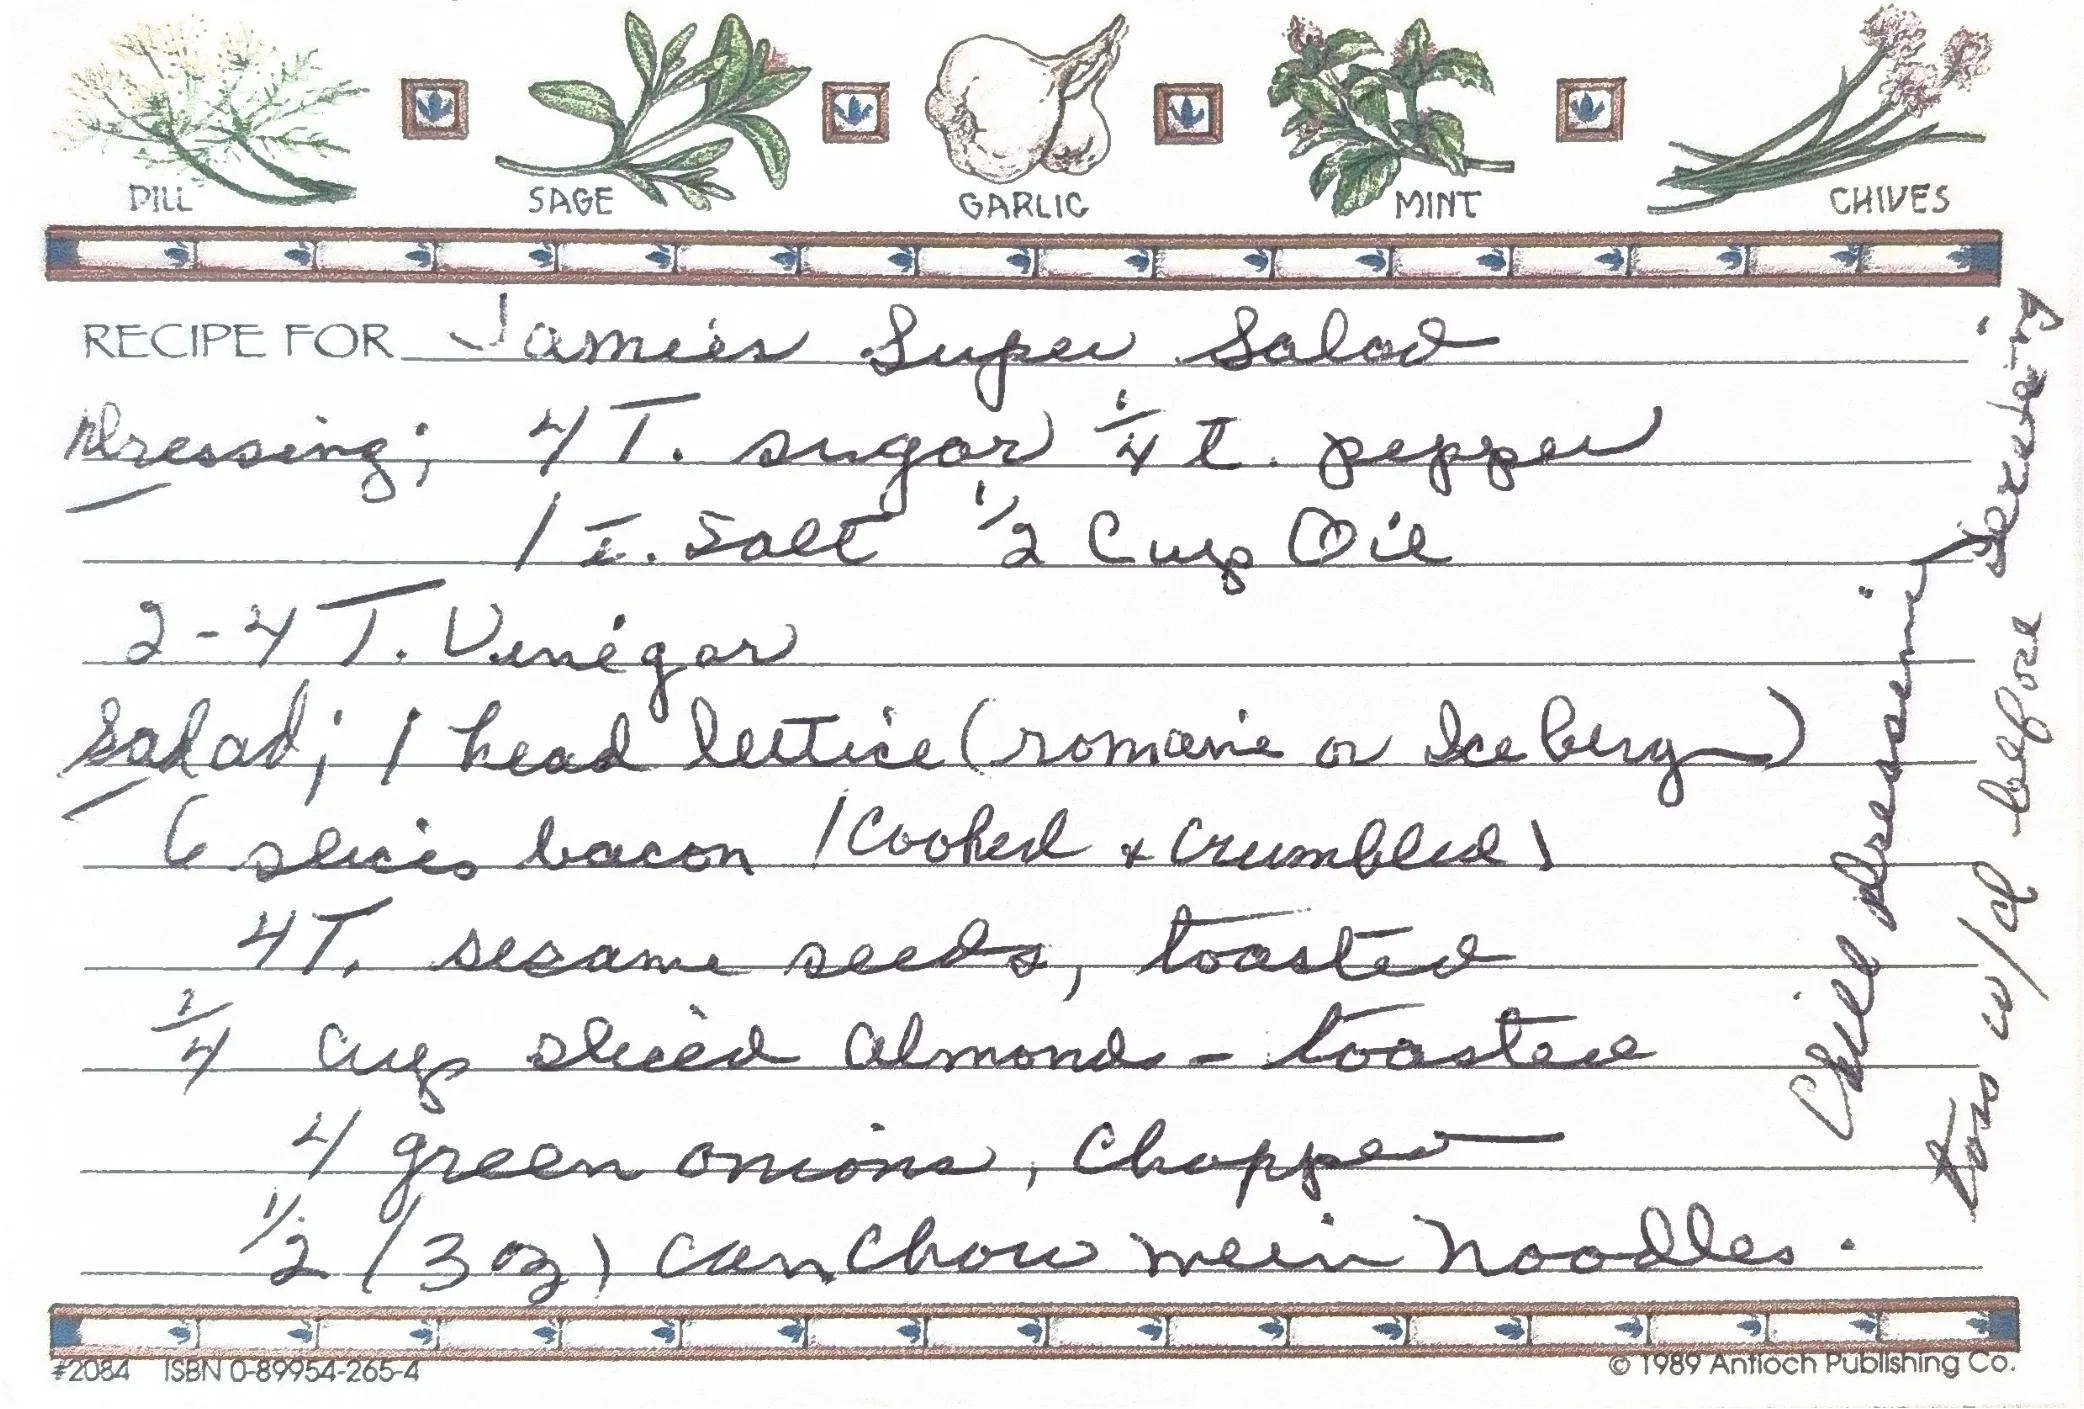 DILL SAGE GARLIC MINT CHIVES
RECIPE FOR Jamies Super Salad
Dressing; 4 T. sugar 1/4 t. pepper
1 t. Salt 1/2 Cup Oil
2-4 T. Vinegar
Salad; 1 head lettice (romaine or Ice berg)
6 slices bacon (Cooked + Crumbled)
4T. sesame seeds, toasted
1/4 cup sliced almonds - toasted
4 green onions, Chopped
1/2 (3 oz) can Chow mein Noodles.
Chill dressing
toss w/d before serving
#2084 ISBN 0-89954-265-4
© 1989 Antioch Publishing Co.